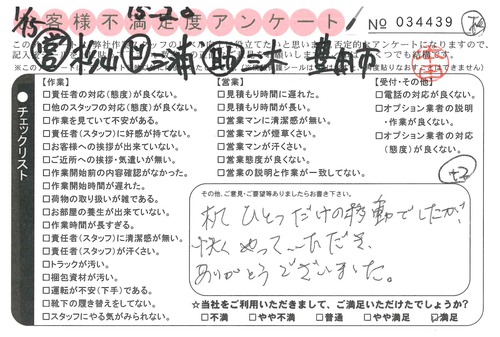 1/15 15-20
お客様不満足度アンケート
No 034439
営 杉山 日 三浦 助 三木 豊田市
チェックリスト
【作業】
□責任者の対応(態度)が良くない。
□他のスタッフの対応(態度)が良くない。
□作業を見ていて不安がある。
□責任者(スタッフ)に好感が持てない。
□お客様への挨拶が出来ていない。
□ご近所への挨拶・気遣いが無い。
□作業開始前の内容確認がなかった。
□作業開始時間が遅れた。
□荷物の取り扱いが雑である。
□お部屋の養生が出来ていない。
□作業時間が長すぎる。
□責任者(スタッフ)に清潔感が無い。
□責任者(スタッフ)が汗くさい。
□トラックが汚い。
□梱包資材が汚い。
□運転が不安(下手)である。
□靴下の履き替えをしてない。
□スタッフにやる気がみられない。
【営業】
□見積もり時間に遅れた。
□見積もり時間が長い。
□営業マンに清潔感が無い。
□営業マンが煙草くさい。
□営業マンが汗くさい。
□営業態度が良くない。
□営業の説明と作業が一致してない。
【受付・その他】
□電話の対応が良くない。
□オプション業者の説明・作業が良くない。
□オプション業者の対応(態度)が良くない。
その他、ご意見・ご要望等ありましたらお書き下さい。
机ひとつだけの移動でしたが、
快くやっていただき、
ありがとうございました。
☆当社をご利用いただきまして、ご満足いただけたでしょうか?
□不満 □やや不満 □普通 □やや満足 ☑満足